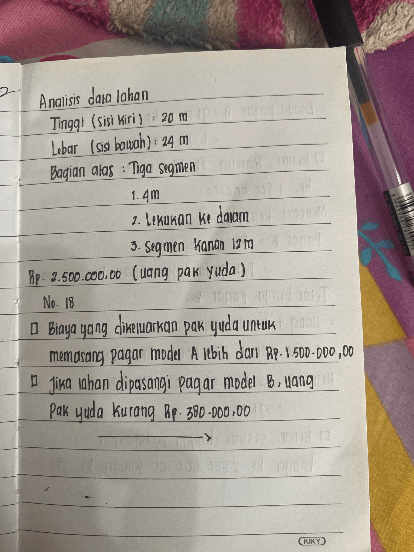 Analisis data lahan
Tinggi (sisi kiri) : 20 m
Lebar (sisi bawah) : 24 m
Bagian atas : Tiga segmen
1. 4m
2. Lekukan ke dalam
3. Segmen kanan 12 m
Rp. 2.500.000,00 (uang pak yuda)
No. 18
Biaya yang dikeluarkan pak yuda untuk
memasang pagar model A lebih dari Rp. 1.500.000,00
Jika lahan dipasangi pagar model B, uang
pak yuda kurang Rp. 380.000,00
KIKY